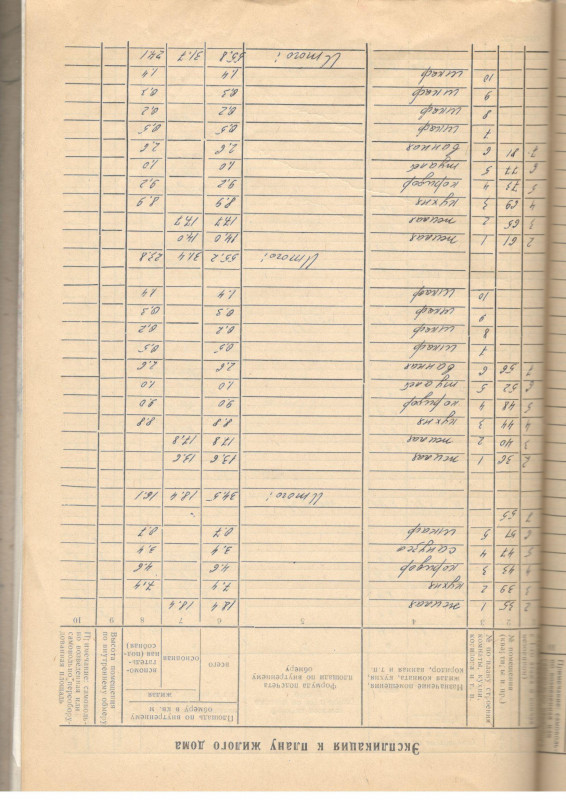 Экспликация к плану жилого дома
№ помещения (квартиры и пр.)
№ по плану строения комнаты, кухни, коридора и т. п.
Назначение помещения: жилая комната, кухня, коридор, ванная и т. п.
Формула подсчета площади по внутреннему обмеру
Площадь по внутреннему обмеру в кв. м
всего
жилая
основная
вспомогательная (подсобная)
Высота помещения по внутреннему обмеру
Примечание: самовольно возведенная или самовольно переоборудованная площадь
2 3 4 5 6 7 8 9 10
2 35 1 жилая 18.4 18.4
3 39 2 кухня 7.4 7.4
4 43 3 коридор 4.6 4.6
5 47 4 санузел 3.4 3.4
6 51 5 шкаф 0.7 0.7
7 55
Итого: 34.5 18.4 16.1
2 36 1 жилая 13.6 13.6
3 40 2 жилая 17.8 17.8
4 44 3 кухня 8.8 8.8
5 48 4 коридор 9.0 9.0
6 52 5 туалет 1.0 1.0
7 56 6 ванная 2.6 2.6
7 шкаф 0.5 0.5
8 шкаф 0.2 0.2
9 шкаф 0.3 0.3
10 шкаф 1.4 1.4
Итого: 55.2 31.4 23.8
2 61 1 жилая 14.0 14.0
3 65 2 жилая 17.7 17.7
4 69 3 кухня 8.9 8.9
5 73 4 коридор 9.2 9.2
6 77 5 туалет 1.0 1.0
7 81 6 ванная 2.6 2.6
7 шкаф 0.5 0.5
8 шкаф 0.2 0.2
9 шкаф 0.3 0.3
10 шкаф 1.4 1.4
Итого: 55.8 31.7 24.1